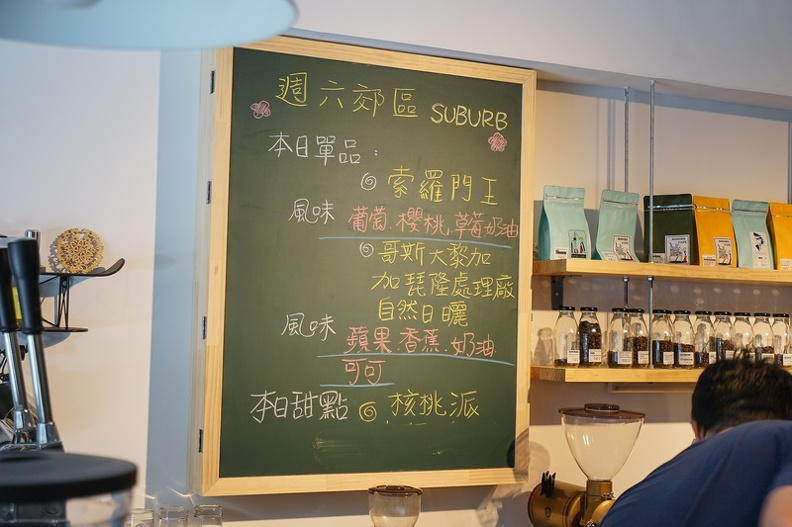 週六郊區 SUBURB
本日單品：
索羅門王
風味 葡萄.櫻桃.草莓奶油
哥斯大黎加
加琵隆處理廠
自然日曬
風味 蘋果.香蕉.奶油
可可
本日甜點 核桃派